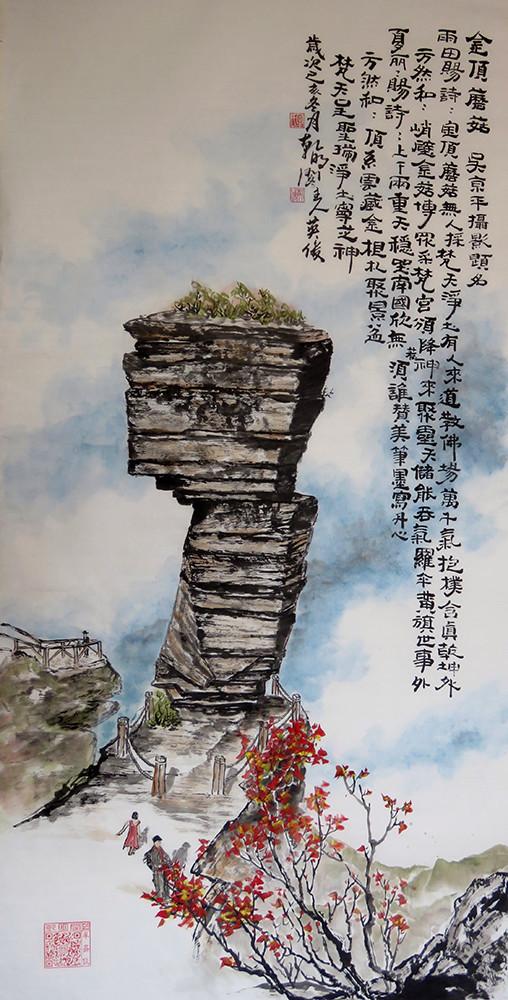 金頂蘑菇 吳京平攝影題名
雨田賜詩：金頂蘑菇無人採梵天淨土有人來道教佛場萬千氣抱樸含真乾坤外
方然和：峭壁金菇博眾采梵宮頒降神來聚靈天儲能吞氣羅傘黃旗世事外
夏丽：賜詩：上下兩重天穩坐南國欣無須誰贊美筆墨寫丹心
方然和：頂系雲藏金根扎聚景
梵天呈聖瑞淨土寧芝神
歲次己亥冬月乾主人英俊